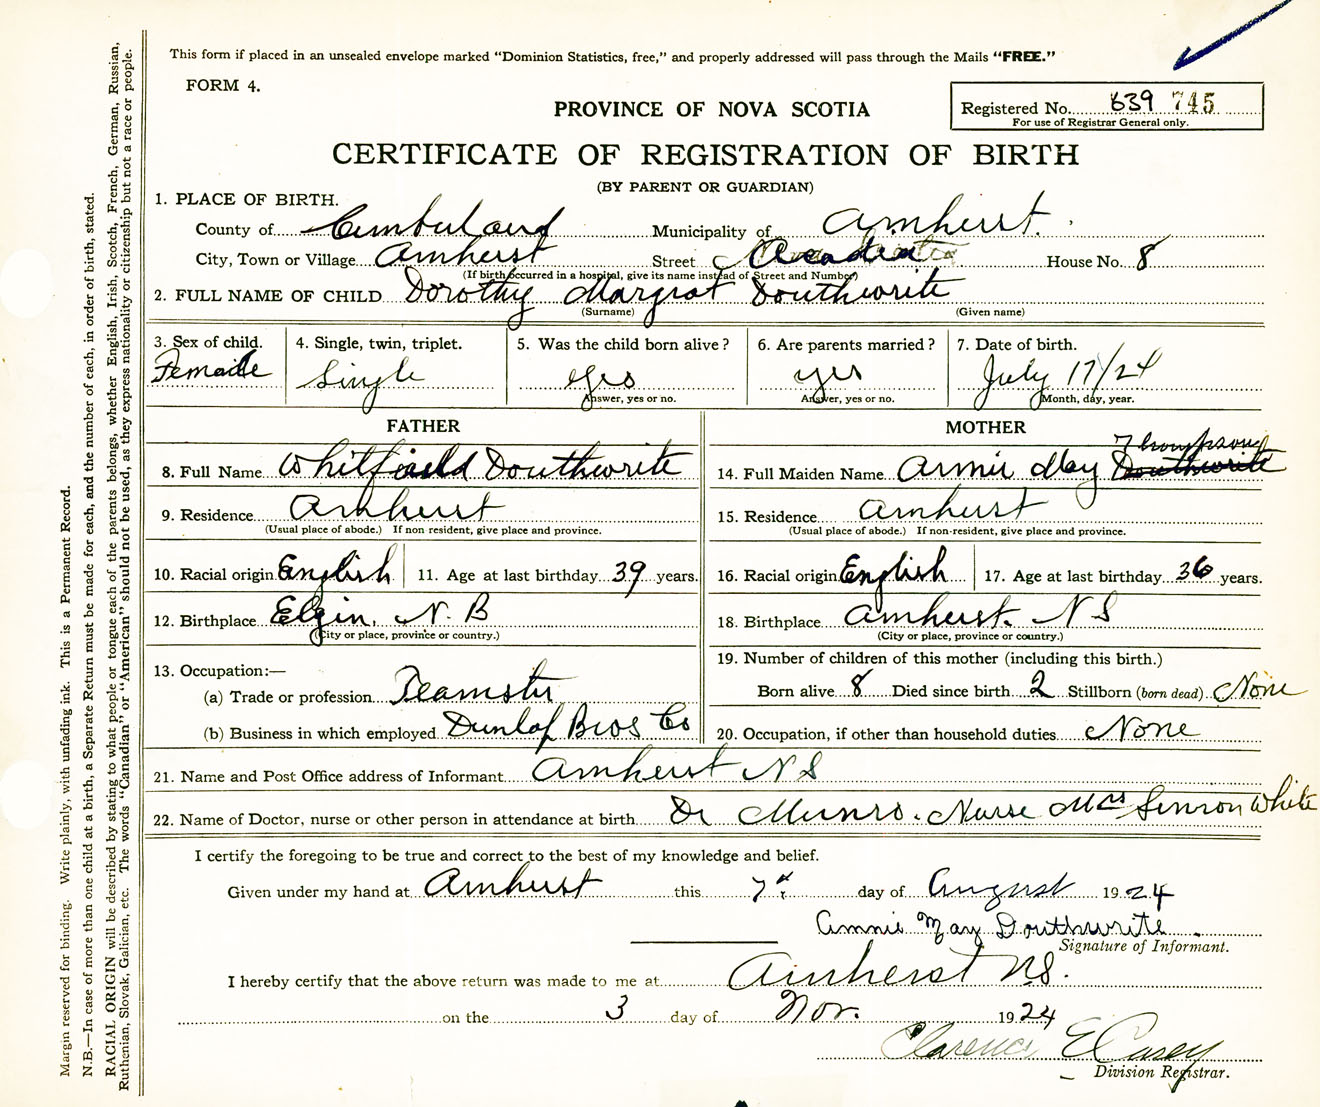 This form if placed in an unsealed envelope marked "Dominion Statistics, free," and properly addressed will pass through the Mails "FREE."
FORM 4.
PROVINCE OF NOVA SCOTIA
Registered No. 639 745
For use of Registrar General only.
CERTIFICATE OF REGISTRATION OF BIRTH
(BY PARENT OR GUARDIAN)
1. PLACE OF BIRTH.
County of Cumberland Municipality of Amherst.
City, Town or Village Amherst Street Acadia House No. 8
(If birth occurred in a hospital, give its name instead of Street and Number)
2. FULL NAME OF CHILD Dorothy Margrat Douthwrite
(Surname) (Given name)
3. Sex of child. 4. Single, twin, triplet. 5. Was the child born alive? 6. Are parents married? 7. Date of birth.
Female Single Yes yes July 17/24
Answer, yes or no. Answer, yes or no. Month, day, year.
FATHER MOTHER
8. Full Name Whitfield Douthwrite 14. Full Maiden Name Annie May Douthwrite Thompson
9. Residence Amherst 15. Residence Amherst
(Usual place of abode.) If non-resident, give place and province. (Usual place of abode.) If non-resident, give place and province.
10. Racial origin English 11. Age at last birthday 39 years. 16. Racial origin English 17. Age at last birthday 36 years.
12. Birthplace Elgin, N.B 18. Birthplace Amherst. N S
(City or place, province or country.) (City or place, province or country.)
13. Occupation:— 19. Number of children of this mother (including this birth.)
(a) Trade or profession Teamster Born alive 8 Died since birth 2 Stillborn (born dead) None
(b) Business in which employed Dunlap Bros Co 20. Occupation, if other than household duties None
21. Name and Post Office address of Informant Amherst N S
22. Name of Doctor, nurse or other person in attendance at birth Dr Munro. Nurse Mrs White
I certify the foregoing to be true and correct to the best of my knowledge and belief.
Given under my hand at Amherst this 7th day of August 1924
Annie May Douthwrite
Signature of Informant.
I hereby certify that the above return was made to me at Amherst N.S.
on the 3 day of Nov. 1924
Clarence E Casey
Division Registrar.
Margin reserved for binding. Write plainly, with unfading ink. This is a Permanent Record.
N.B.—In case of more than one child at a birth, a Separate Return must be made for each, and the number of each, in order of birth, stated.
RACIAL ORIGIN will be described by stating to what people or tongue each of the parents belongs, whether English, Irish, Scotch, French, German, Russian,
Ruthenian, Slovak, Galician, etc. The words "Canadian" or "American" should not be used, as they express nationality or citizenship but not a race or people.